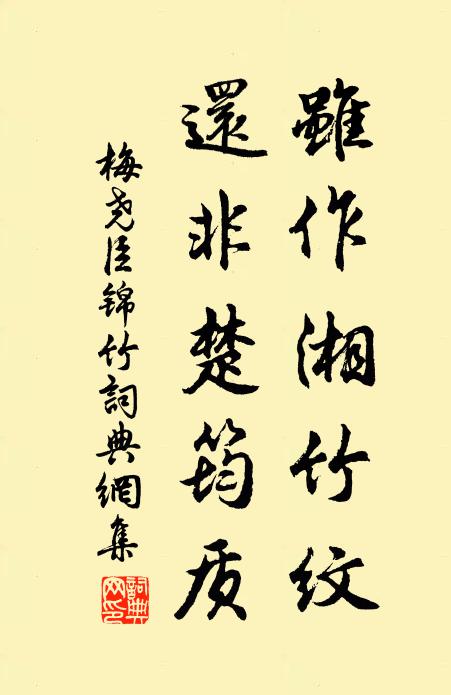 雖作湘竹紋
還非楚筠质
梅尧臣锦竹詞典網集
詞典網印